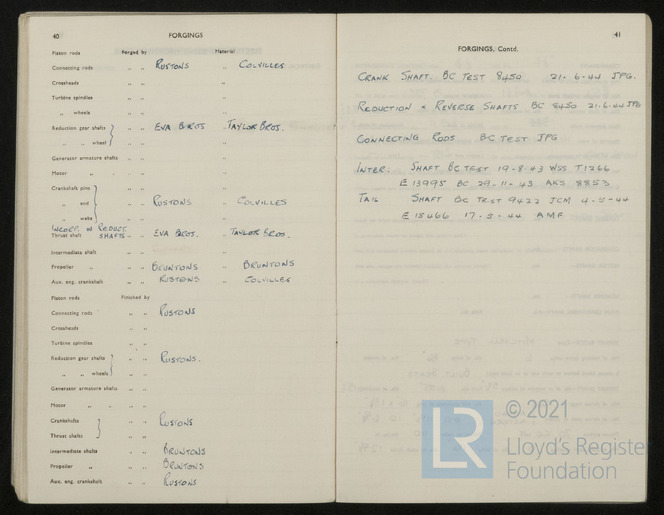 40 FORGINGS
Piston rods Forged by Material
Connecting rods " " RUSTONS " COLVILLES
Crossheads " " "
Turbine spindles " " "
" wheels " " "
Reduction gear shafts " " EVA BROS " TAYLOR BROS.
" " wheel " " "
Generator armature shafts " " "
Motor " " " " "
Crankshafts pins " " "
" and " " RUSTONS " COLVILLES
" webs " " "
INCORP. REDUCT.
Thrust shaft SHAFTS " " EVA BROS. " TAYLOR BROS.
Intermediate shaft " " "
Propeller " " " BRUNTONS " BRUNTONS
Aux. eng. crankshaft " " RUSTONS " COLVILLES
Piston rods Finished by
Connecting rods " " RUSTONS
Crossheads " "
Turbine spindles " "
Reduction gear shafts " " RUSTONS.
" " wheels " "
Generator armature shafts " "
Motor " " " "
Crankshafts " " RUSTONS
Thrust shafts " "
Intermediate shafts " " BRUNTONS
Propeller " " " BRUNTONS
Aux. eng. crankshaft " " RUSTONS
41
FORGINGS, Contd.
CRANK SHAFT. BC TEST 8450 21-6-44 JPG.
REDUCTION & REVERSE SHAFTS BC 8450 21.6.44 JPG
CONNECTING RODS BC TEST JPG
INTER: SHAFT BC TEST 19-8-43 WSS T1266
E 13995 BC 29-11-43 AKS 8853
TAIL SHAFT BC TEST 9422 JCM 4-5-44
E 15466 17-5-44 AMF
LR
© 2021
Lloyd's Register
Foundation